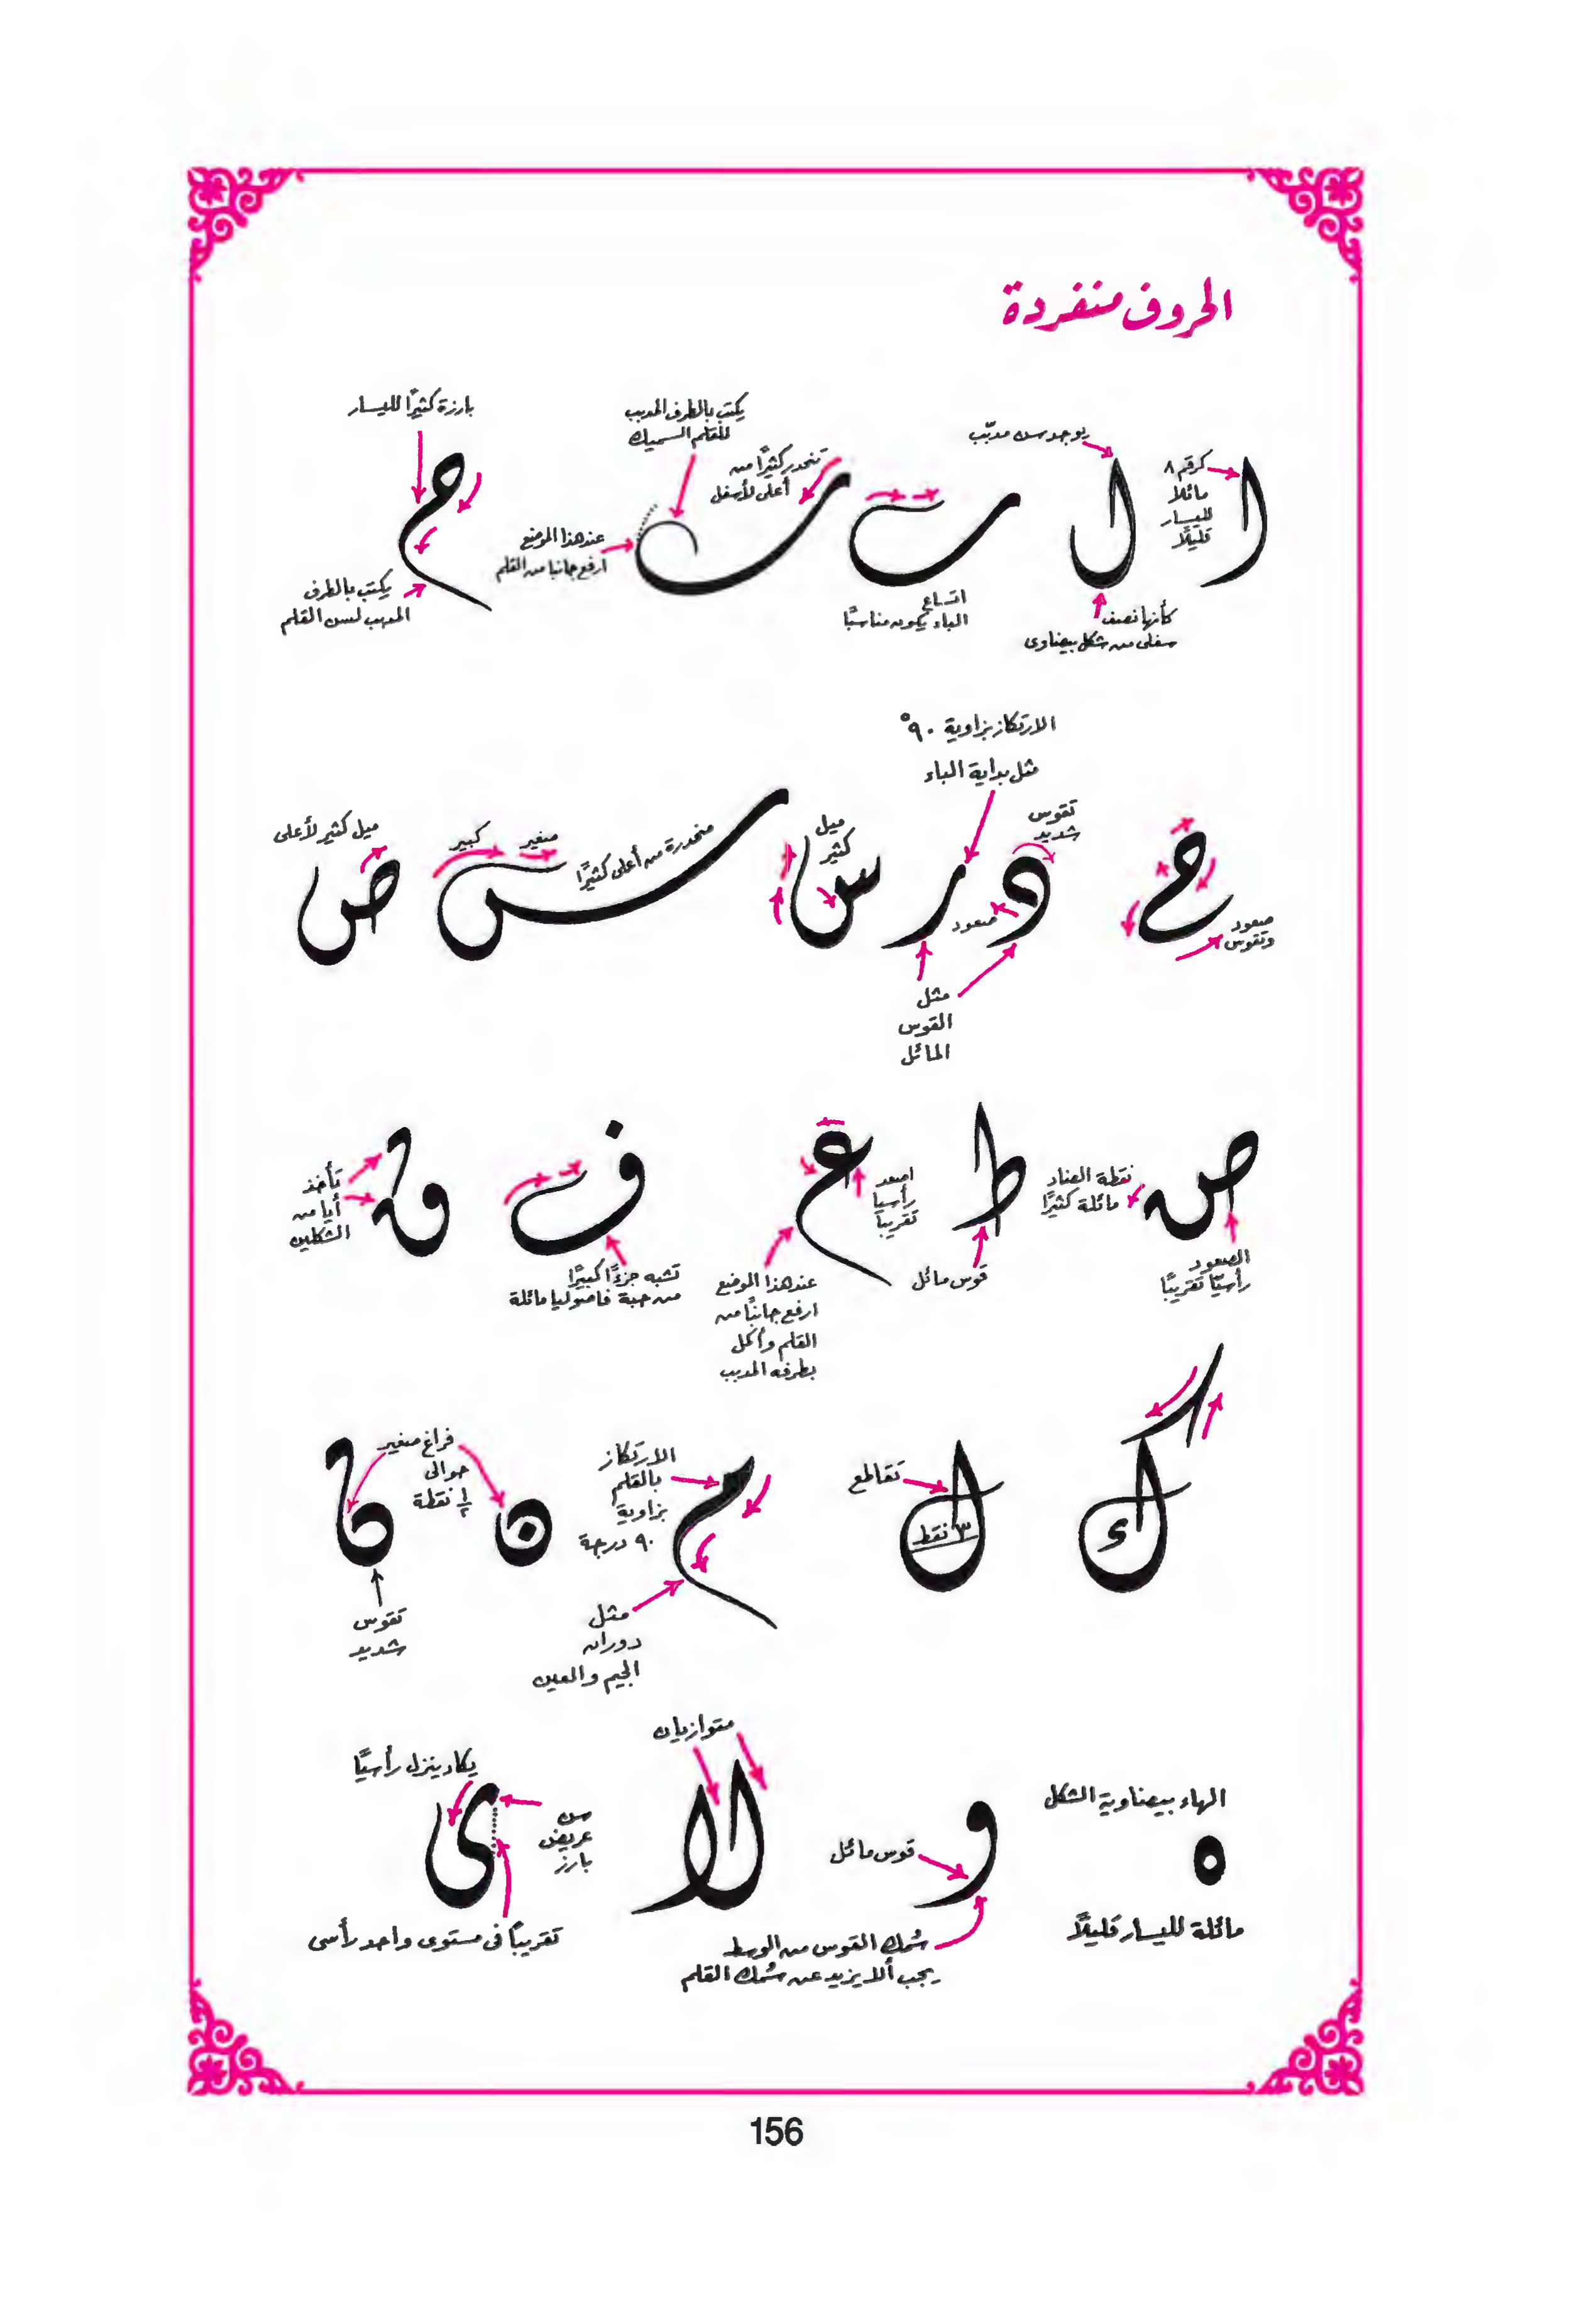 الحروف منفردة
ا
كرقم ٨
مائلا
لليسار
قليلًا
ل
يوجد سن مدبّب
كأنها نصف
سفلى من شكل بيضاوى
ب
اتساع
الباء يكون مناسبًا
ب
تنحدر كثيرًا من
أعلى لأسفل
يكتب بالطرف المدبب
للقلم السميك
عند هذا الموضع
ارفع جانبا من القلم
ح
بارزة كثيرًا لليسار
يكتب بالطرف
المدبب لسن القلم
ح
صعود
وتقوس
د
تقوس
شديد
صعود
ر
الارتكاز بزاوية ٩٠°
مثل بداية الباء
مثل
القوس
المائل
س
ميل
كثير
س
منحدرة من أعلى كثيرًا
صغير
كبير
ص
ميل كثير لأعلى
ص
نقطة العناد
مائلة كثيرًا
الصعود
رأسيًا تقريبًا
ط
قوس مائل
ع
اصعد
رأسيا
تقريبا
عند هذا الموضع
ارفع جانبًا من
القلم وأكمل
بطرفه المدبب
ف
تشبه جزءًا كبيرًا
من حبة فاصوليا مائلة
ق
تأخذ
أيا من
الشكلين
ك
ك
تقاطع
٣ نقط
م
الارتكاز
بالقلم
بزاوية
٩٠ درجة
مثل
دوران
الجيم والعين
ن
فراغ صغير
حوالى
½ نقطة
ن
تقوس
شديد
الهاء بيضاوية الشكل
ه
مائلة لليسار قليلًا
و
قوس مائل
سُمك القوس من الوسط
يجب ألا يزيد عن سُمك القلم
لا
متوازيان
ى
يكاد ينزل رأسيًا
سن
عريض
بارز
تقريبًا فى مستوى واحد رأسى
156